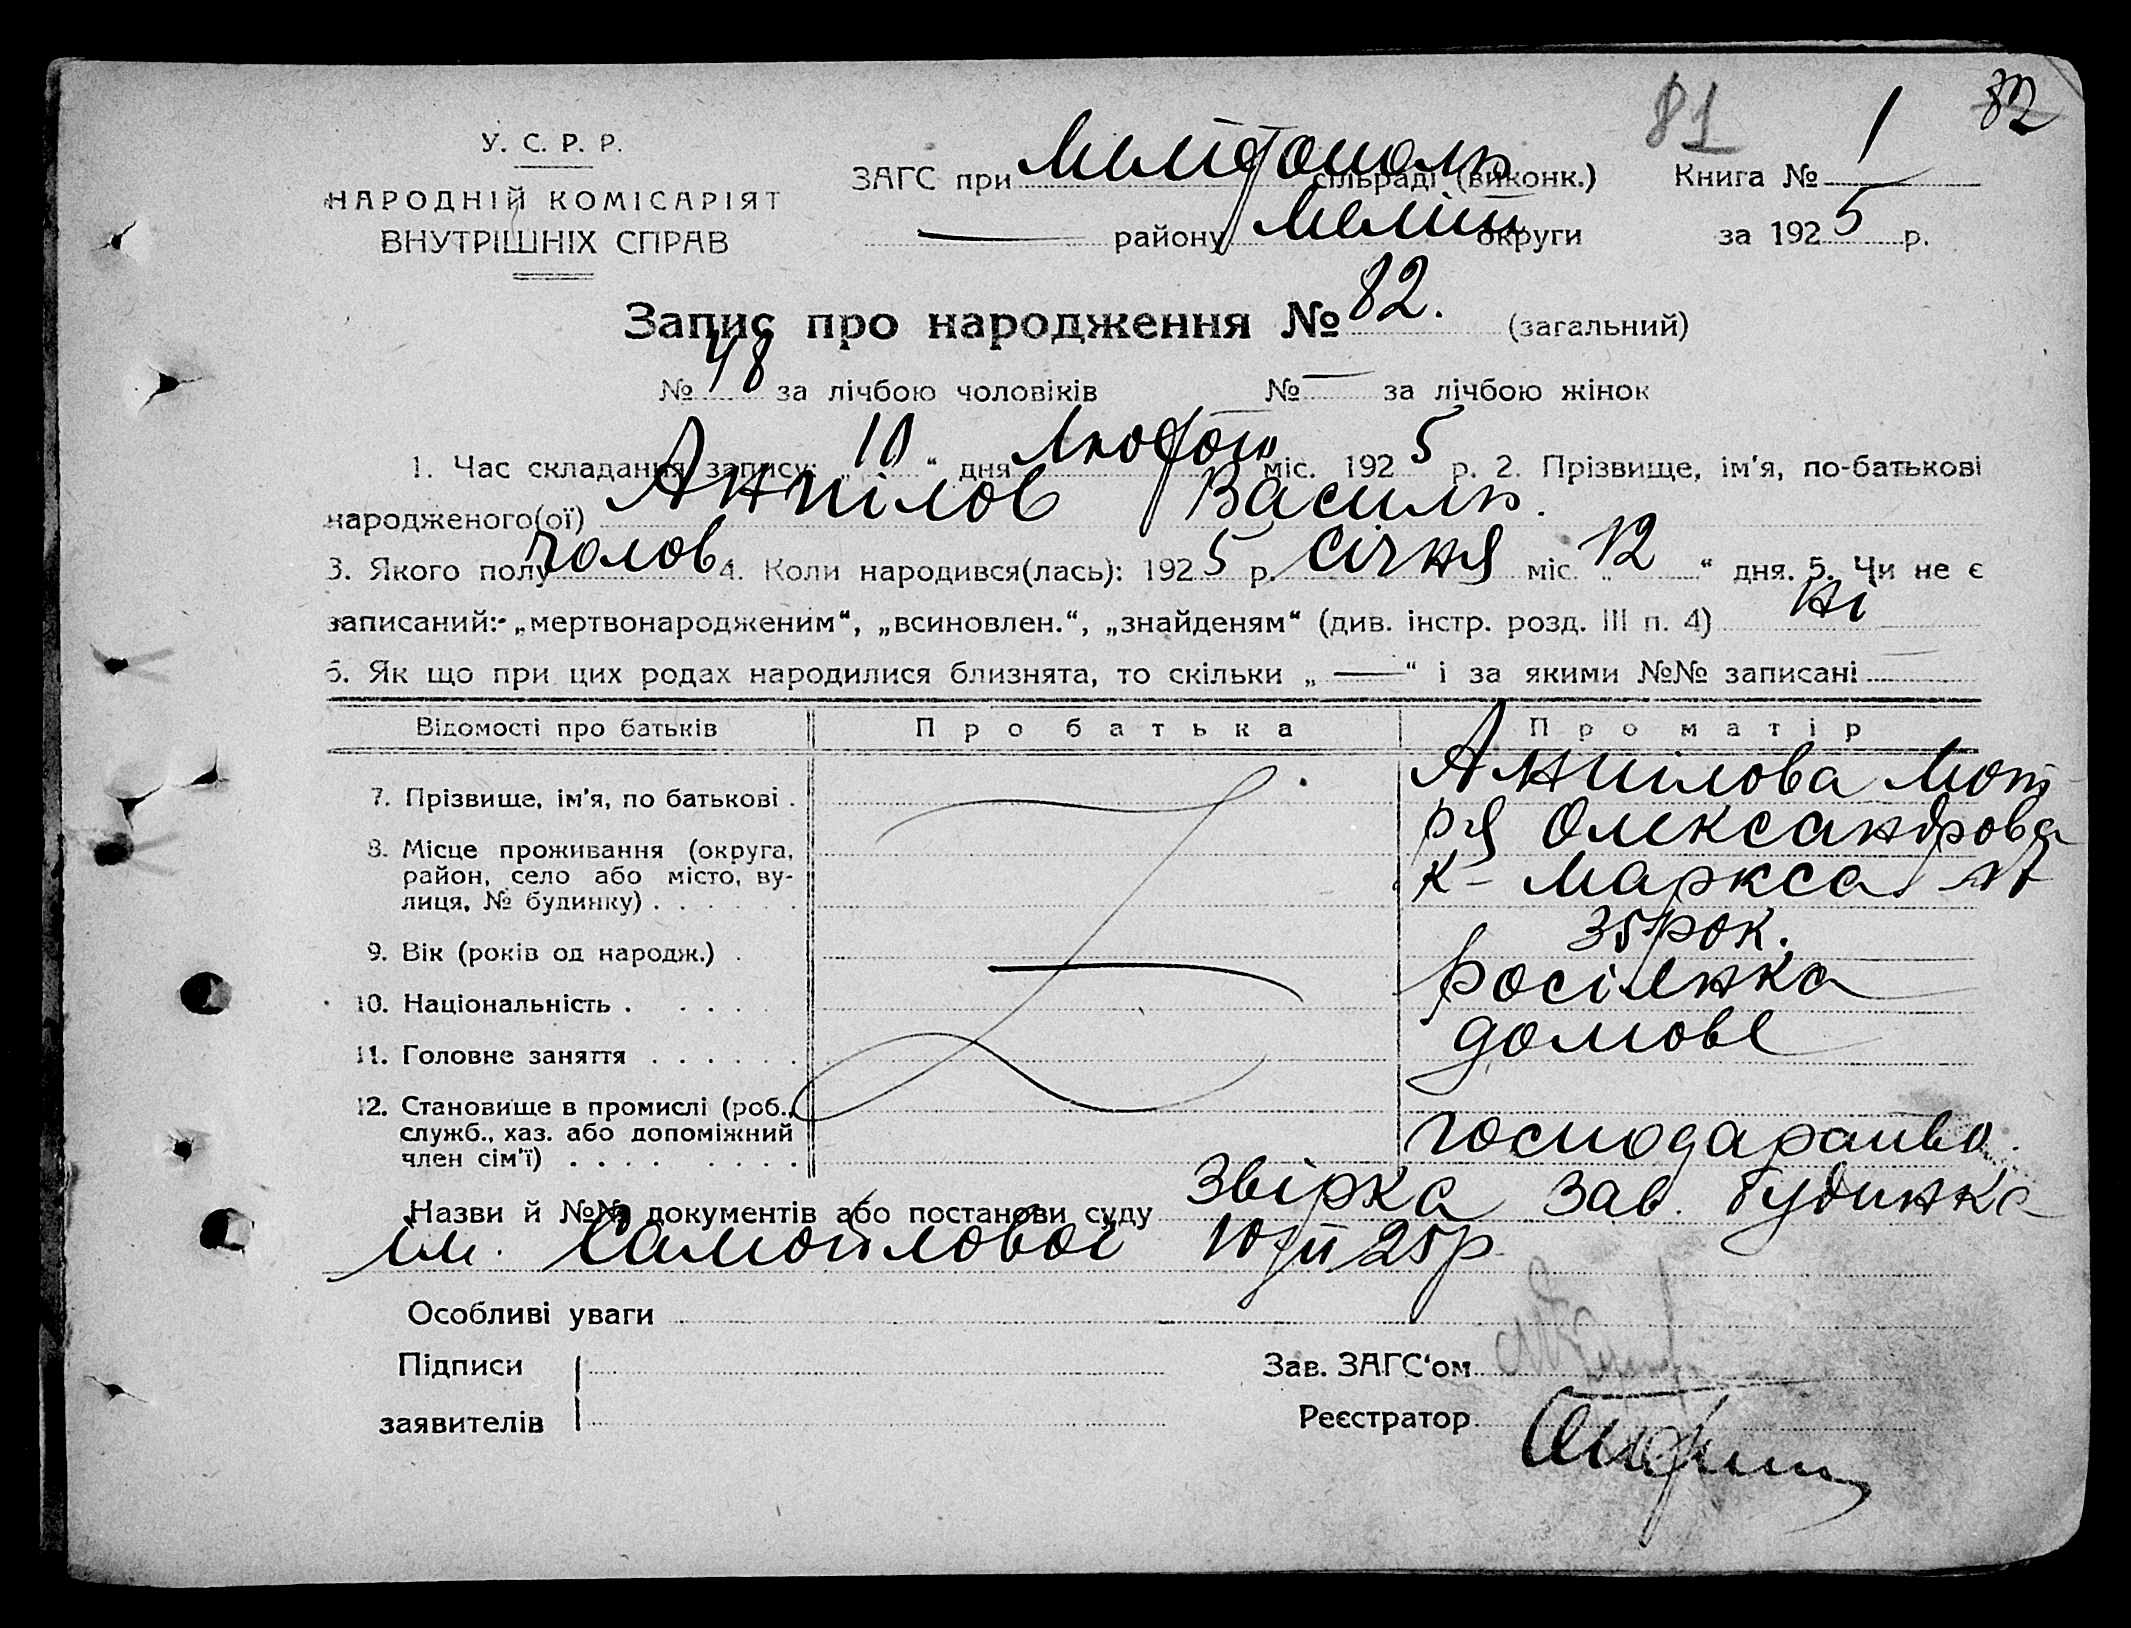 81 1 82
У. С. Р. Р.
НАРОДНІЙ КОМІСАРІЯТ
ВНУТРІШНІХ СПРАВ
ЗАГС при Мелітополь сільраді (виконк.) Книга № 1
— району Меліт округи за 1925 р.
Запис про народження № 82. (загальний)
№ 48 за лічбою чоловіків № — за лічбою жінок
1. Час складання запису: „10“ дня Лютого міс. 1925 р. 2. Прізвище, ім'я, по-батькові
народженого(ої) Анпілов Василь.
3. Якого полу чолов 4. Коли народився(лась): 1925 р. Січня міс. „12“ дня. 5. Чи не є
записаний: „мертвонародженим“, „всиновлен.“, „знайденям“ (див. інстр. розд. III п. 4) ні
6. Як що при цих родах народилися близнята, то скільки „—“ і за якими №№ записані
Відомості про батьків Про батька Про матір
7. Прізвище, ім'я, по батькові . Анпілова Мот
ря Олександрова
8. Місце проживання (округа,
район, село або місто, ву-
лиця, № будинку) . . . . . . К-Маркса
9. Вік (років од народж.) . 35 рок.
10. Національність . . . . . Росіянка
11. Головне заняття . . . . . . домове
12. Становище в промислі (роб.,
служб., хаз. або допоміжний
член сім'ї) . . . . . . . . господарство.
Назви й №№ документів або постанови суду Звірка Зав. будинка
ім. Самойлової 10/II 25р
Особливі уваги
Підписи
заявителів
Зав. ЗАГС'ом
Реєстратор